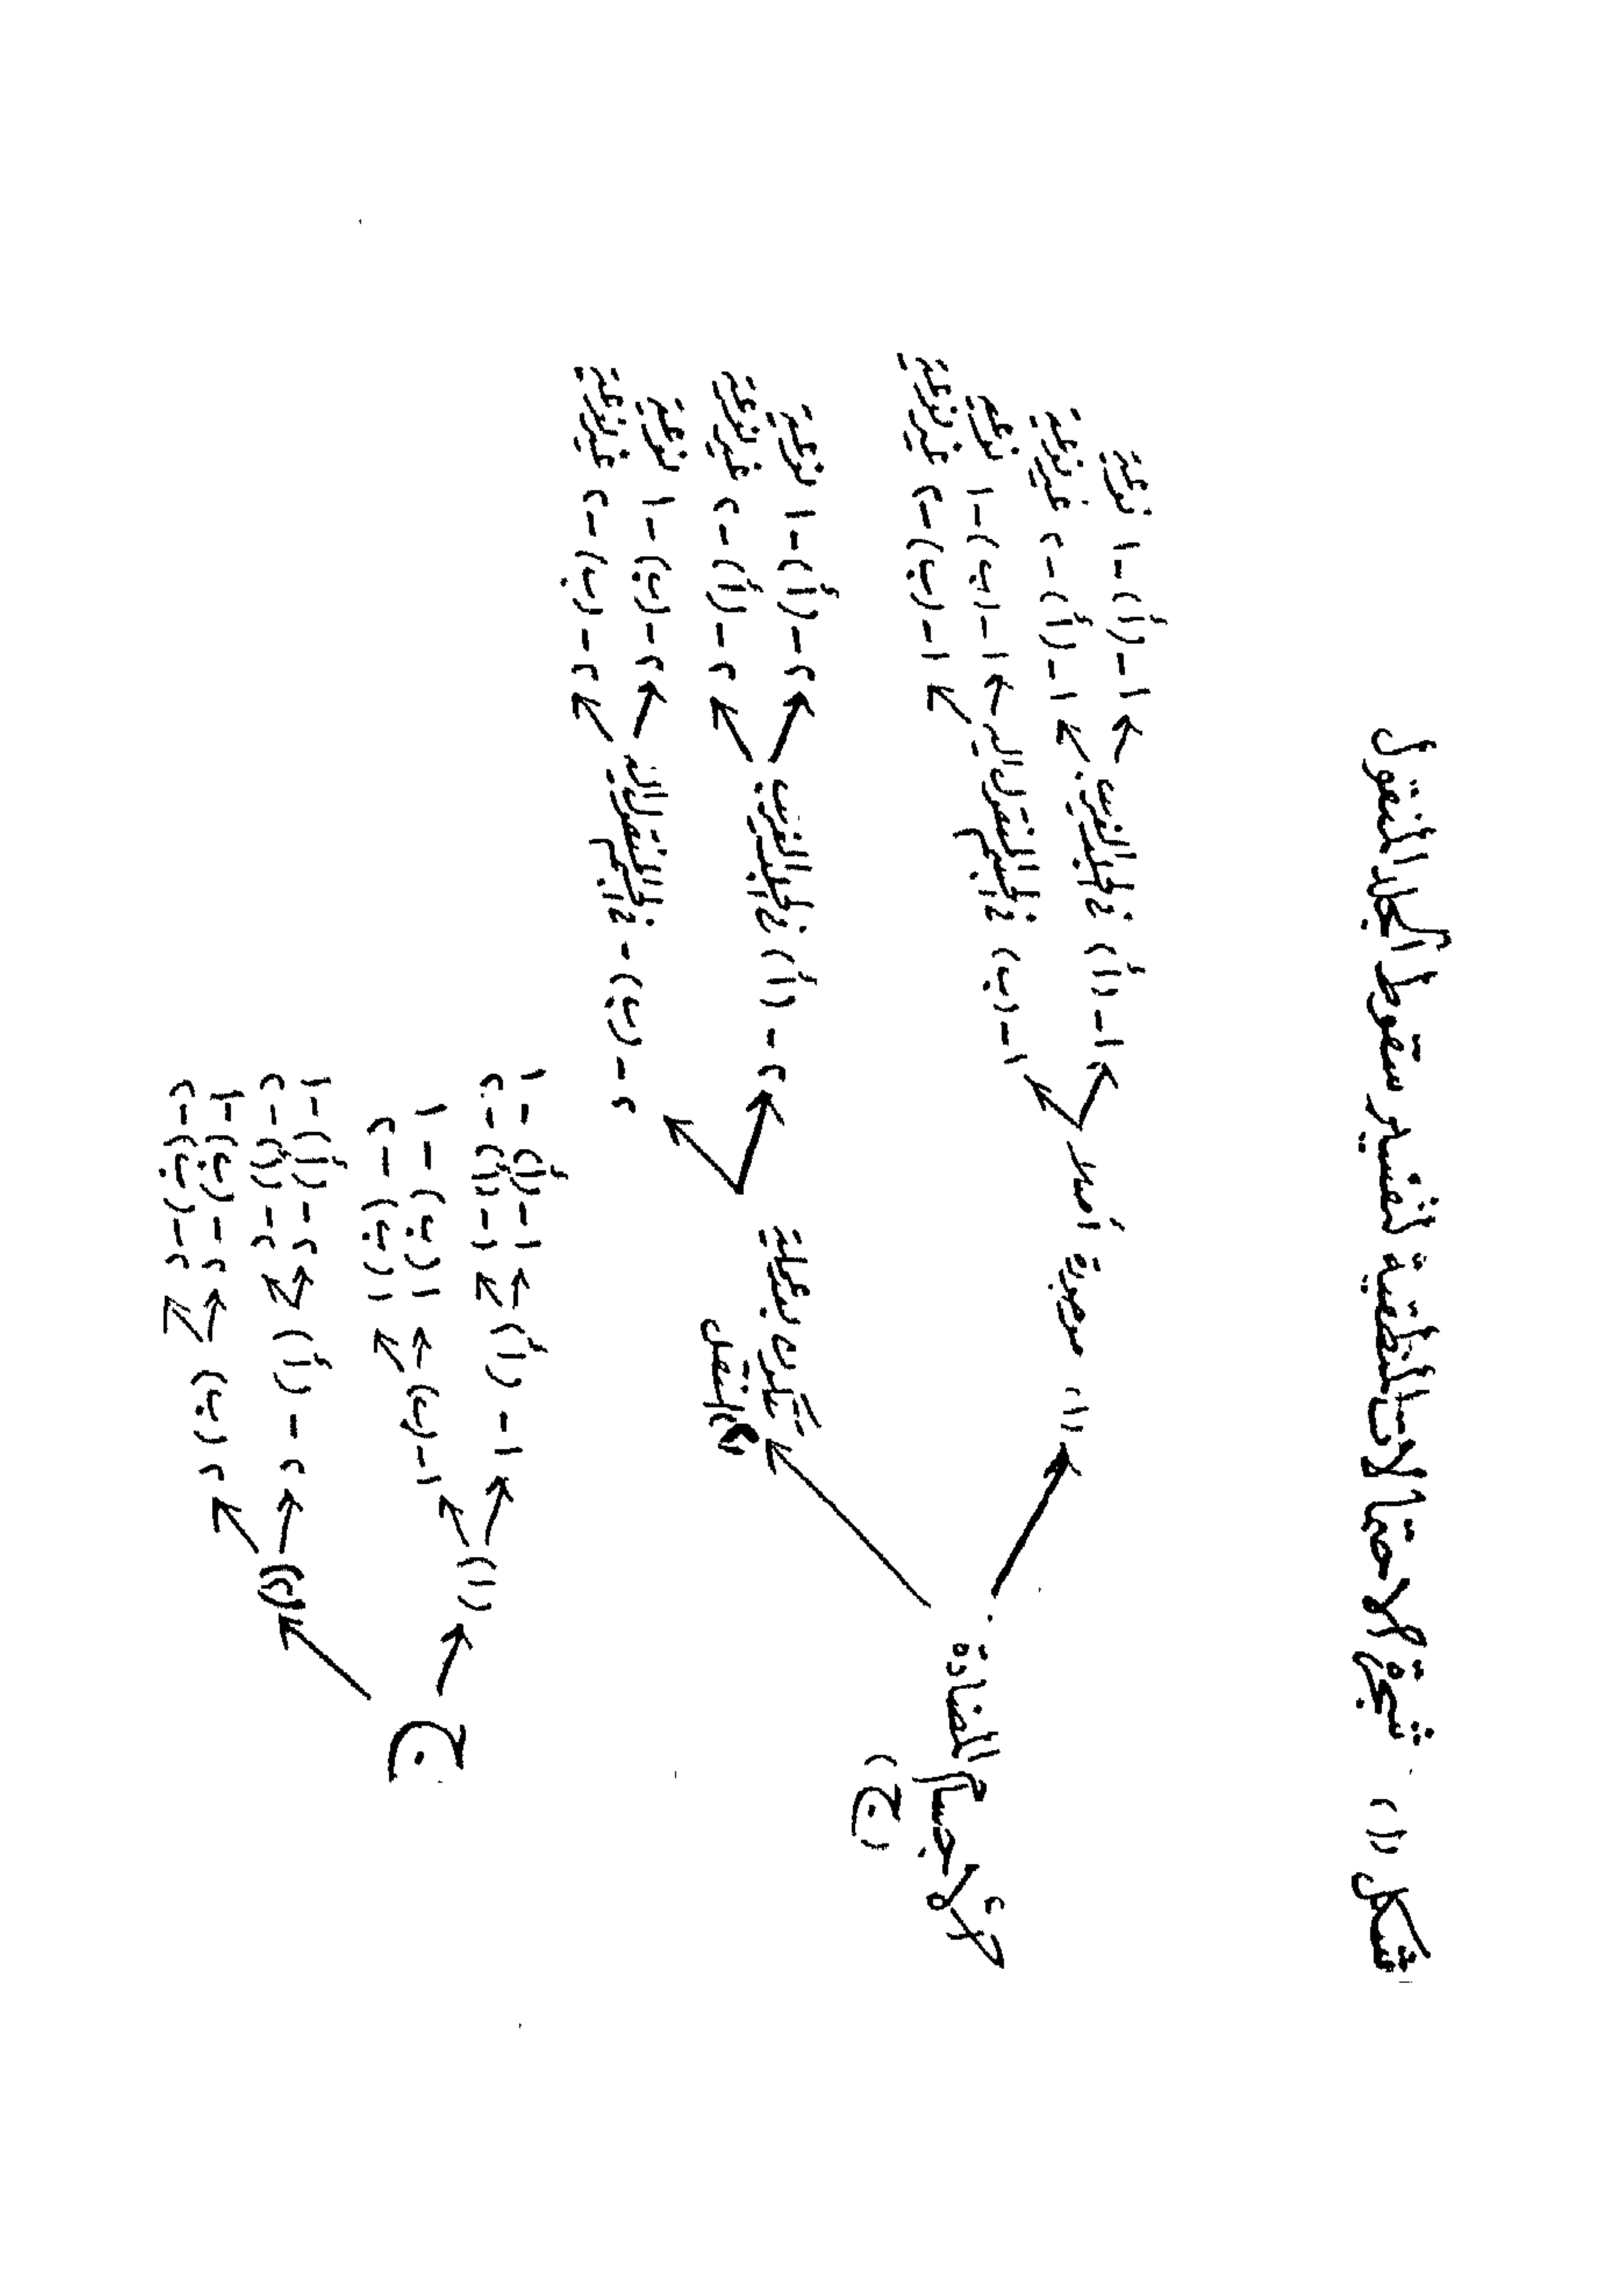 شكل (١) شجرة الاحتمالات المنطقية لتفسير سقوط الجلد المنقول
(١) موجودة أصلا
١-(أ) في الجلد الغريب
١-(أ)-١ نوعية
١-(أ)-٢ غير نوعية
١-(ب) في الجسم المنقول إليه
١-(ب)-١ نوعية
١-(ب)-٢ غير نوعية
الأجسام المضادة
(ج)
(٢)
٢-(أ) في الجلد الغريب
٢-(أ)-١ نوعية
٢-(أ)-٢ غير نوعية
٢-(ب)- في الجسم المنقول إليه
٢-(ب)-١ نوعية
٢-(ب)-٢ غير نوعية
ج
(١)
١-(أ)
١-(أ)-١
١-(أ)-٢
١-(ب)
١(ب)-١
١(ب)-٢
(٢)
٢-(أ)
٢-(أ)-١
٢-(أ)-٢
٢(ب)
٢-(ب)-١
٢-(ب)-٢